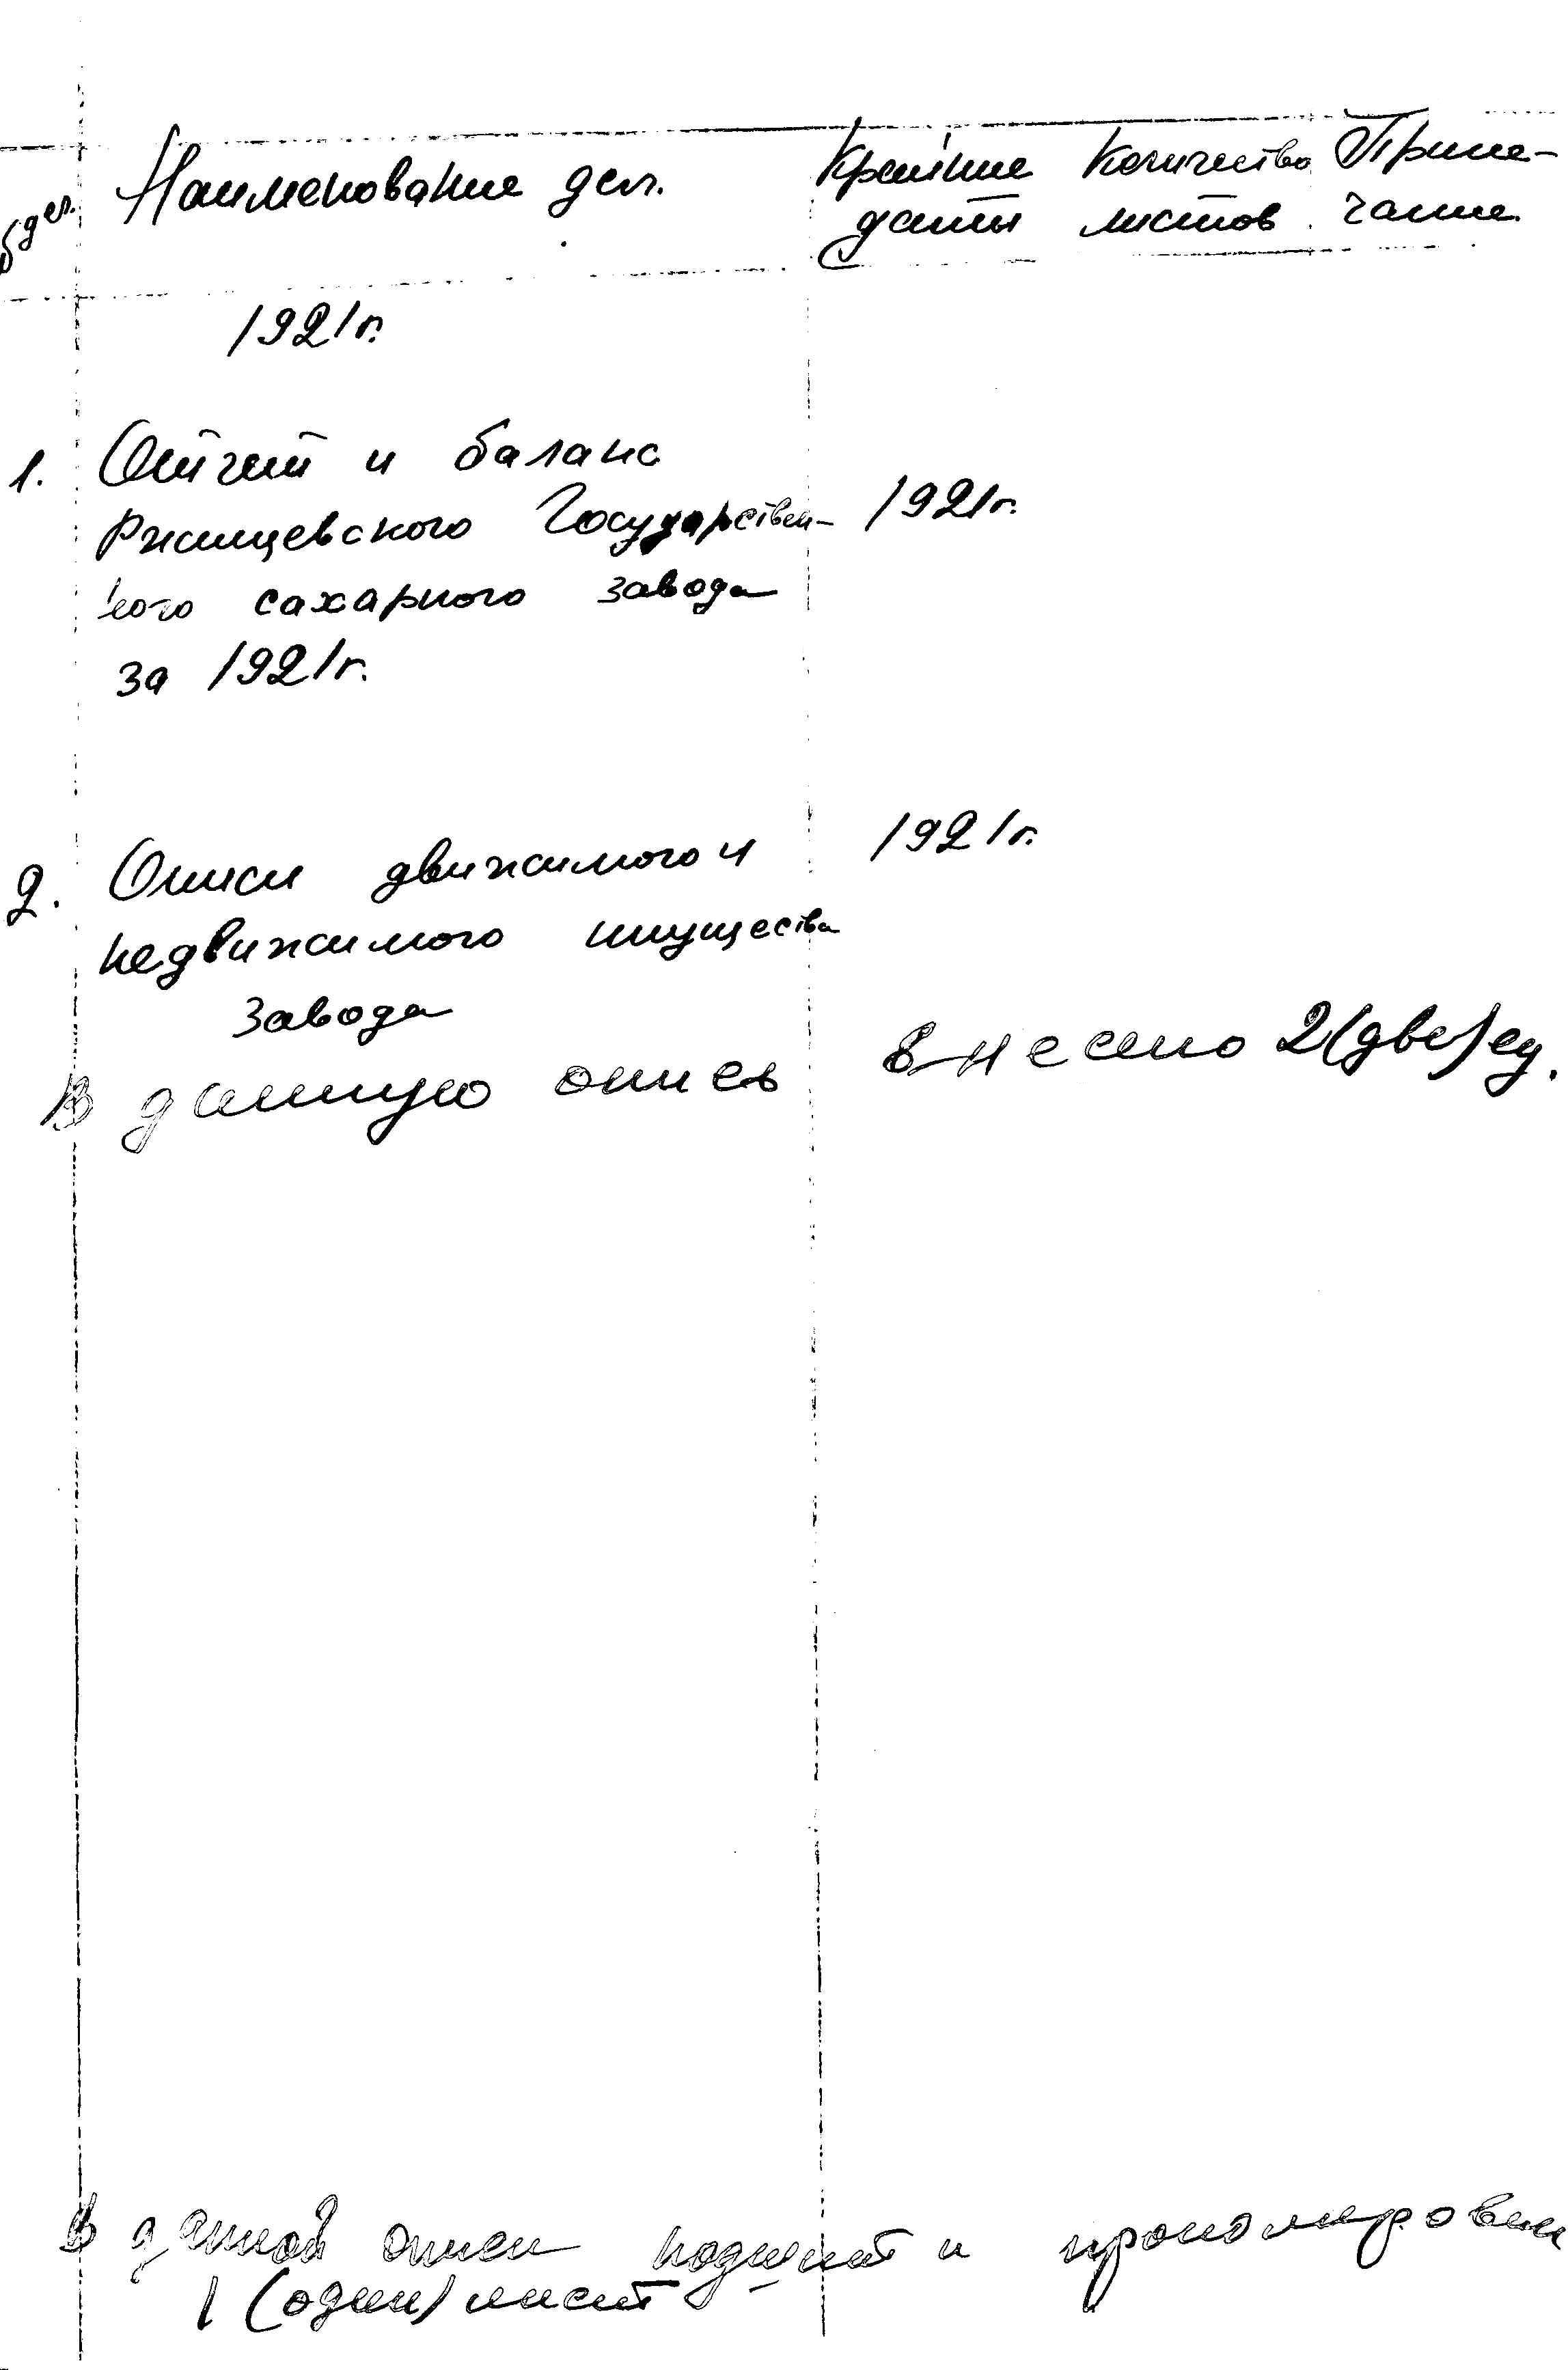 дел. Наименование дел. Крайние Количество Приме-
даты листов чание
1921г.
1. Отчет и баланс
Ржищевского Государствен- 1921г.
ного сахарного завода
за 1921г.
2. Описи движимого и 1921г.
недвижимого имущества
завода
В данную опись внесено 2(две)ед.
В данной описи подшит и пронумерован
1 (один) лист